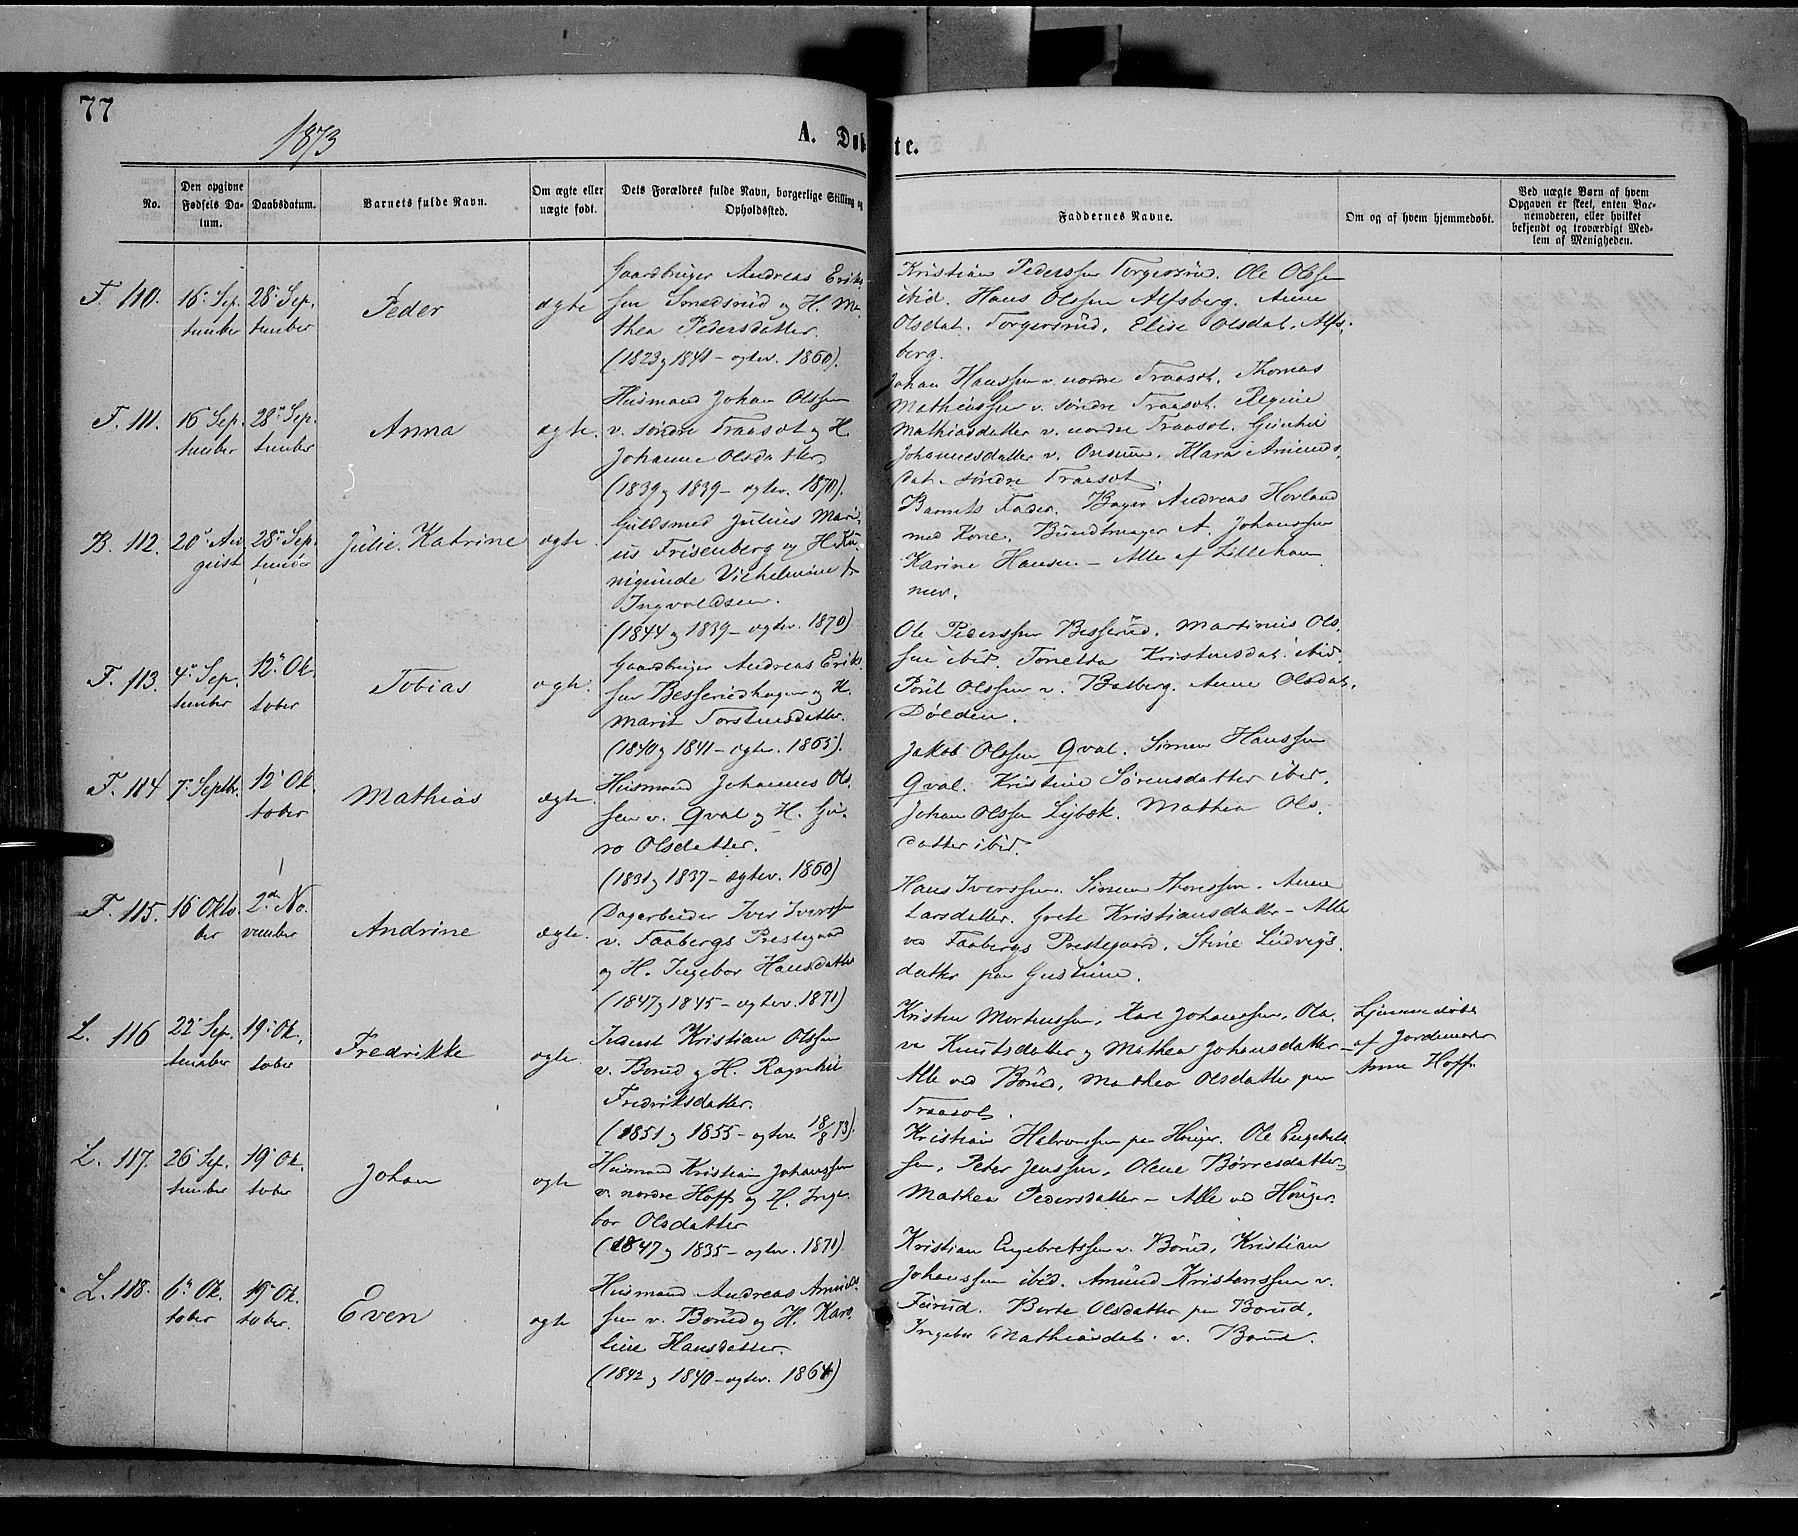 77
1873
A. Døbte.
No.
Den opgivne Fødsels Datum.
Daabsdatum.
Barnets fulde Navn.
Om ægte eller uægte født.
Dets Forældres fulde Navn, borgerlige Stilling og Opholdssted.
Faddernes Navne.
Om og af hvem hjemmedøbt.
Ved uægte Børn af hvem Opgaven er skeet, enten Barnemoderen, eller hvilket bekjendt og troværdigt Medlem af Menigheden.
F. 110.
16 Sep.
tember
28 Sep.
tember
Peder
ægte
Gaardbruger Andreas Erik-
sen Smedsrud og H. Ma-
thea Pedersdatter.
(1823 og 1841 - egtev. 1860).
Kristian Pederssen Torgersrud. Ole Olssen
ibid. Hans Olssen Alfsberg. Anne
Olsdat. Torgersrud, Elise Olsdat. Alfs-
berg.
F. 111.
16 Sep.
tember
28 Sep.
tember
Anna
ægte.
Husmand Johan Olssen
v. søndre Traaset og H.
Johanne Olsdatter
(1839 og 1839 - egtev. 1870).
Johan Hanssen v. nordre Traaset. Thomas
Mathiassen v. søndre Traaset. Regine
Mathiasdatter v. nordre Traaset. Gunhil
Johannesdatter v. Onsum. Klara Amunds-
dat. søndre Traaset.
B. 112.
20 Au
gust
28 Sep.
tember
Julie Katrine
ægte.
Guldsmed Julius Mari-
us Frisenberg og H. Ku-
nigunde Vilhelmine f.
Ingvaldsen.
(1844 og 1839 - egtev. 1870)
Barnets Fader. Bager Andreas Hovland
med Kone. Bundtmager A. Johanssen
Karine Hansen - Alle af Lilleham
mer.
F. 113.
4 Sep.
tember
12 Ok.
tober
Tobias
ægte.
Gaardbruger Andreas Erik-
sen Besserudhagen og H.
Marit Torstensdatter.
(1840 og 1841 - egtev. 1865).
Ole Pederssen Besserud. Martinus Ols-
sen ibid. Tonetta Kristensdat. ibid.
Poul Olssen v. Balberg. Anne Olsdat.
Dølden.
F. 114
7 Septbr.
12 Ok.
tober
Mathias
ægte.
Husmand Johannes Ols
sen v. Qval og H. Gu-
ro Olsdatter.
(1831 og 1837 - ægtev. 1860)
Jakob Olssen Qval. Simen Hanssen
Qval. Kristine Sørensdatter ibid.
Johan Olssen Lybæk. Mathea Ols.
datter ibid.
F. 115.
16 Okto
ber
2den No.
vember
Andrine
ægte.
Dagarbeider Iver Iverssen
v. Faabergs Prestegaard
og H. Ingebor Hansdatter
(1847 og 1845 - egtev. 1871)
Hans Iverssen. Simen Thoressen. Anne
Larsdatter. Grete Kristiansdatter - Alle
ved Faabergs Prestegaard. Stine Ludvigs-
datter paa
L. 116
22 Sep.
tember
19 Ok.
tober
Fredrikke
egte
Inderst Kristian Olssen
v. Borud og H. Ragnhil
Fredriksdatter.
(1851 og 1855 - egtev. 18/8 73).
Kristen Mortenssen, Karl Johanssen, Ola.
va Knutsdatter og Mathea Johansdatter -
Alle ved Borud, Mathea Olsdatter paa
Traaset.
Hjemmedøbt
af Jordemoder
Anne Hoff.
L. 117.
26 Sep.
tember
19 Ok.
tober
Johan
egte
Husmand Kristian Johanssen
v. nordre Hoff og H. Inge-
bor Olsdatter
(1847 og 1835 - egtev. 1871)
Kristian Halvorssen paa Houger. Ole Engebret-
sen, Peter Jenssen, Olene Børresdatter
Mathea Pedersdatter - Alle ved Houger.
L. 118.
6 Ok.
tober
19 Ok.
tober.
Even
egte
Husmand Andreas Amunds-
sen v. Borud og H. Karo-
line Hansdatter.
(1842 og 1840 - egtev. 1864)
Kristian Engebretssen v. Borud, Kristian
Johanssen ibid. Amund Kristenssen v.
Furud. Berte Olsdatter paa Borud,
Ingebor Mathiasdat. v. Borud.